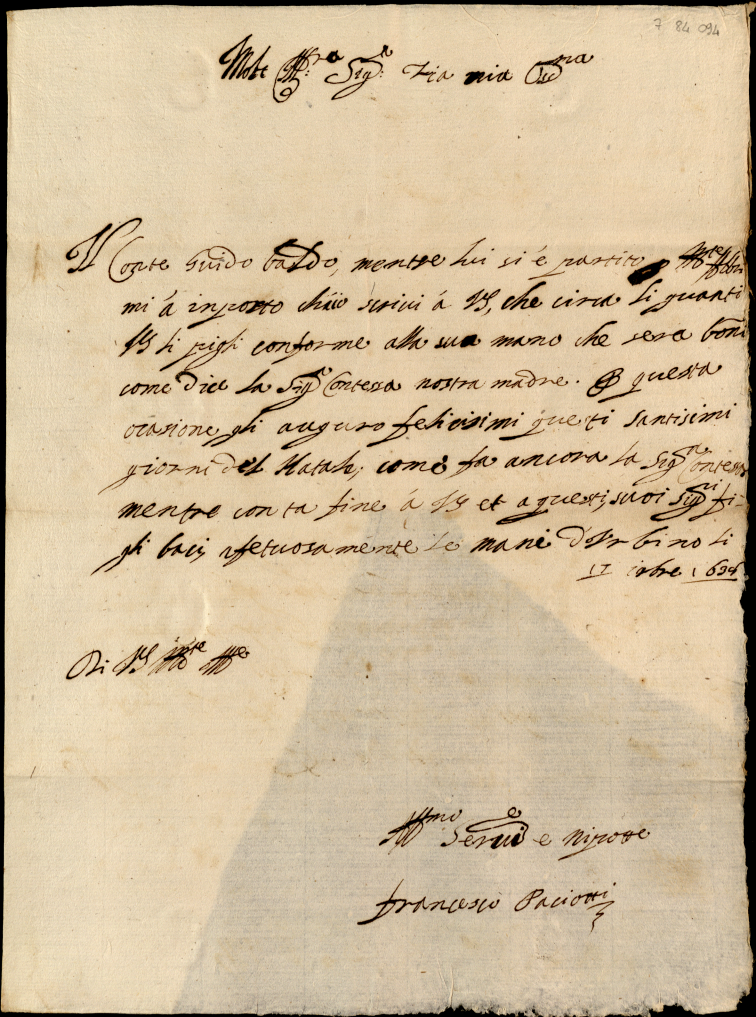 7 84 094
Molt Ill:re Sig:a Zia mia Oss.ma
Il Conte Guido baldo, mentre lui si é partito p
mi á inposto chiio scrivi á VS, che circa li guanti
VS li pigli conforme alla sua mano che sera boni
come dice la Sig.a Contessa nostra madre. P questa
ocasione gli auguro felicisimi questi santisimi
giorni del Natale, come fa ancora la Sig.a Contessa
mentre con ta fine á VS et a questi suoi Sig.ri fi-
gli bacio afetuosamente le mani d'Vrbino li
17 xbre
Di VS Ill.e
Aff.mo Serv.e e Nipote
francesco Paciotti